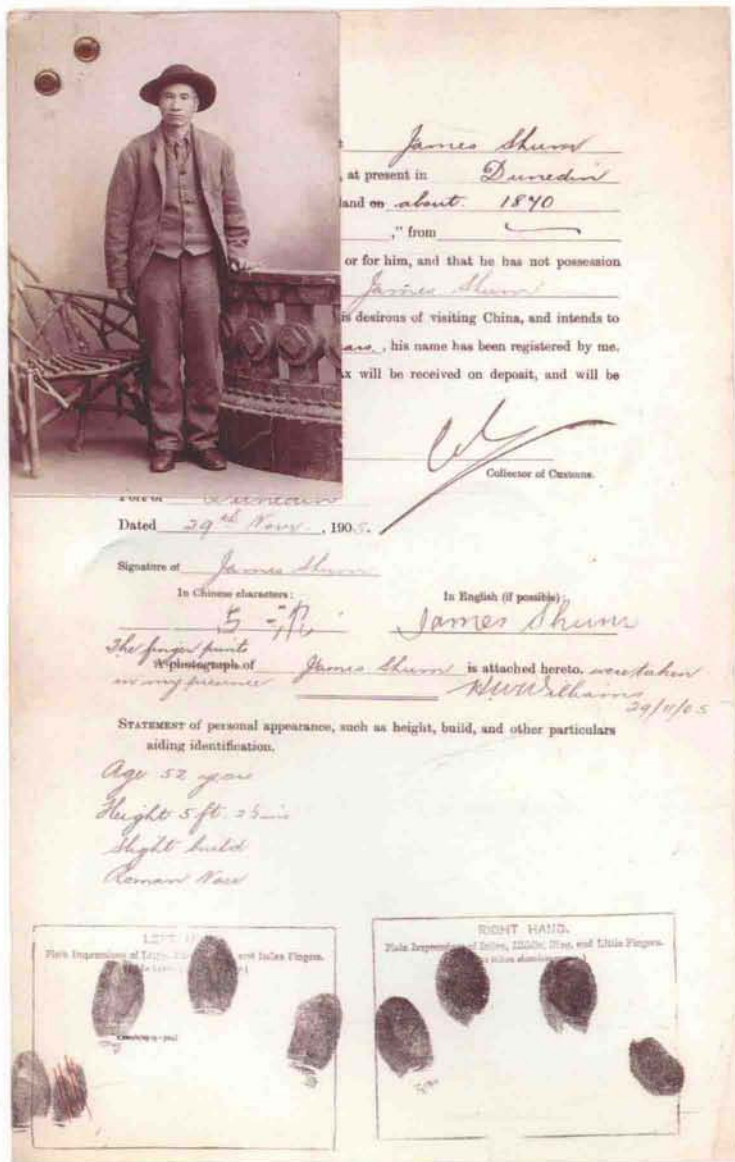 James Shum
, at present in Dunedin
land on about 1870
," from
or for him, and that he has not possession
James Shum
is desirous of visiting China, and intends to
, his name has been registered by me.
x will be received on deposit, and will be
Collector of Customs.
Port of Dunedin
Dated 29th Novr., 1905.
Signature of James Shum
In Chinese characters: In English (if possible):
James Shum
The finger prints
A photograph of James Shum is attached hereto. were taken
in my presence H W Williams
29/11/05
STATEMENT of personal appearance, such as height, build, and other particulars
aiding identification.
Age 52 years
Height 5 ft.
Slight build
Roman Nose
LEFT
Plain Impressions of and Index Fingers.
RIGHT HAND.
Plain Impressions of Index, Middle, Ring, and Little Fingers.